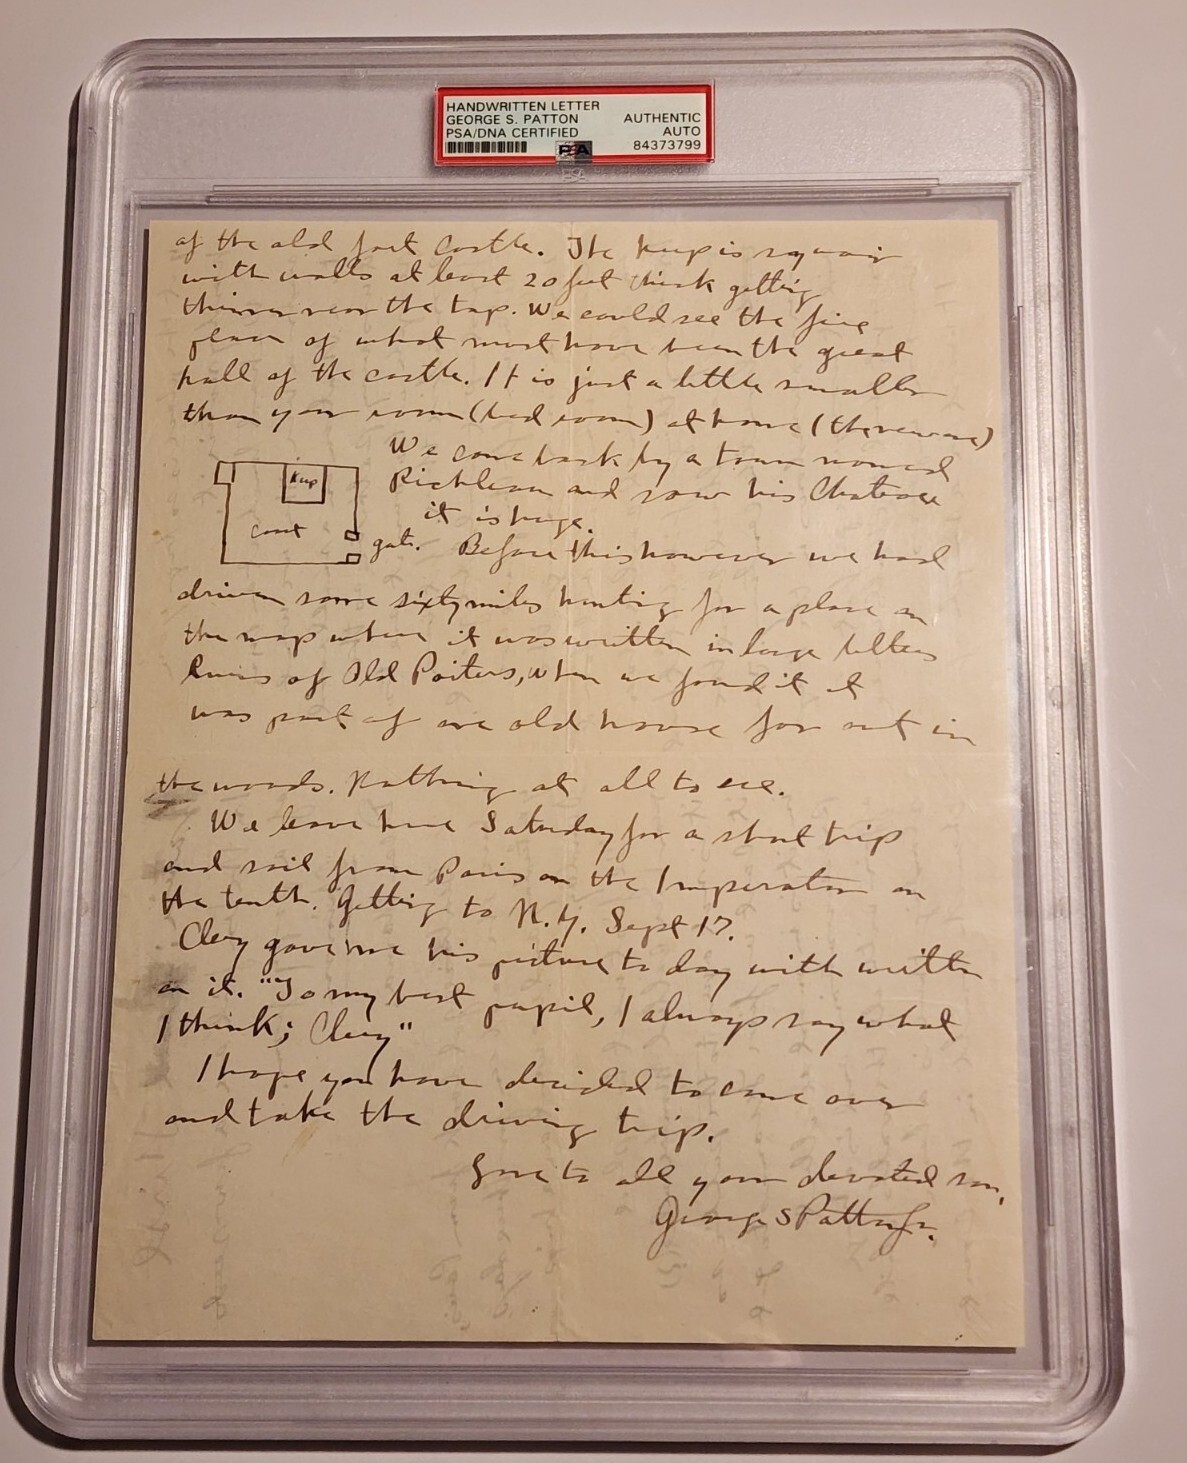 HANDWRITTEN LETTER
GEORGE S. PATTON
PSA/DNA CERTIFIED
AUTHENTIC
AUTO
84373799
PSA
of the old fort castle. The keep is squair
with walls at least 20 feet thick getting
thinner near the top. We could see the fire
place of what must have been the great
hall of the castle. It is just a little smaller
than your room (bed room) at home (the new one)
We came back by a town named
Richleau and saw his Chateaux
it is huge.
keep
court
gate.
Before this however we had
driven some sixty miles hunting for a place on
the map where it was written in large letters
Ruins of Old Poiters, when we found it it
was part of one old house far out in
the woods. Nothing at all to see.
We leave here Saturday for a short trip
and sail from Paris on the Imperator on
the tenth. Getting to N.Y. Sept 17.
Clery gave me his picture to day with written
on it. "To my best pupil, I always say what
I think; Clery"
I hope you have decided to come over
and take the driving trip.
Love to all your devoted son,
George S Patton Jr.